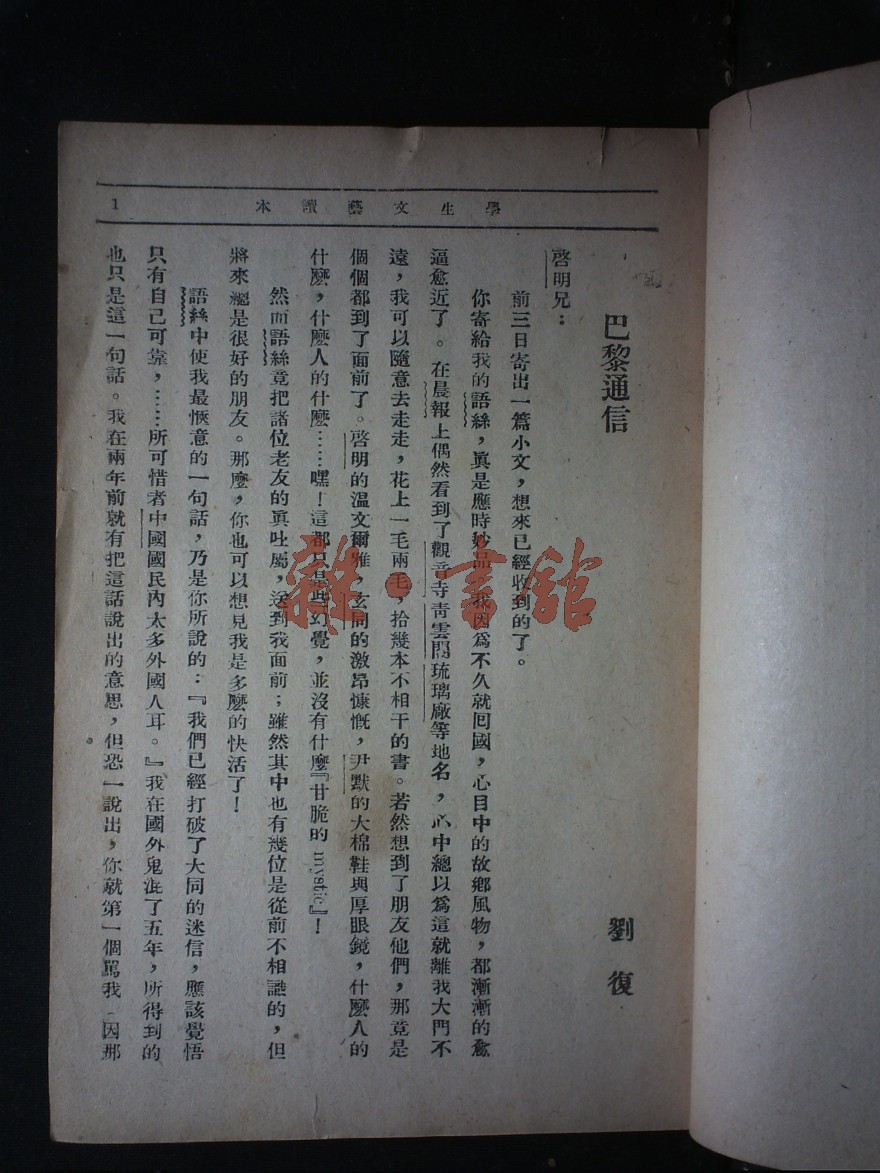 學生文藝讀本
1
巴黎通信
劉復
啓明兄：
前三日寄出一篇小文，想來已經收到的了。
你寄給我的語絲，眞是應時妙品。我因爲不久就囘國，心目中的故鄉風物，都漸漸的愈
逼愈近了。在晨報上偶然看到了觀音寺靑雲閣琉璃廠等地名，心中總以爲這就離我大門不
遠，我可以隨意去走走，花上一毛兩毛，拾幾本不相干的書。若然想到了朋友他們，那竟是
個個都到了面前了。啓明的温文爾雅，玄同的激昂慷慨，尹默的大棉鞋與厚眼鏡，什麼人的
什麼，什麼人的什麼……嘿！這都只是些幻覺，並沒有什麼『甘脆的 mystic』！
然而語絲竟把諸位老友的眞吐屬，送到我面前；雖然其中也有幾位是從前不相識的，但
將來總是很好的朋友。那麼，你也可以想見我是多麼的快活了！
語絲中使我最愜意的一句話，乃是你所說的：『我們已經打破了大同的迷信，應該覺悟
只有自己可靠，……所可惜者中國國民內太多外國人耳。』我在國外鬼混了五年，所得到的
也只是這一句話。我在兩年前就有把這話說出的意思，但恐一說出，你就第一個罵我，因那
雜·書館